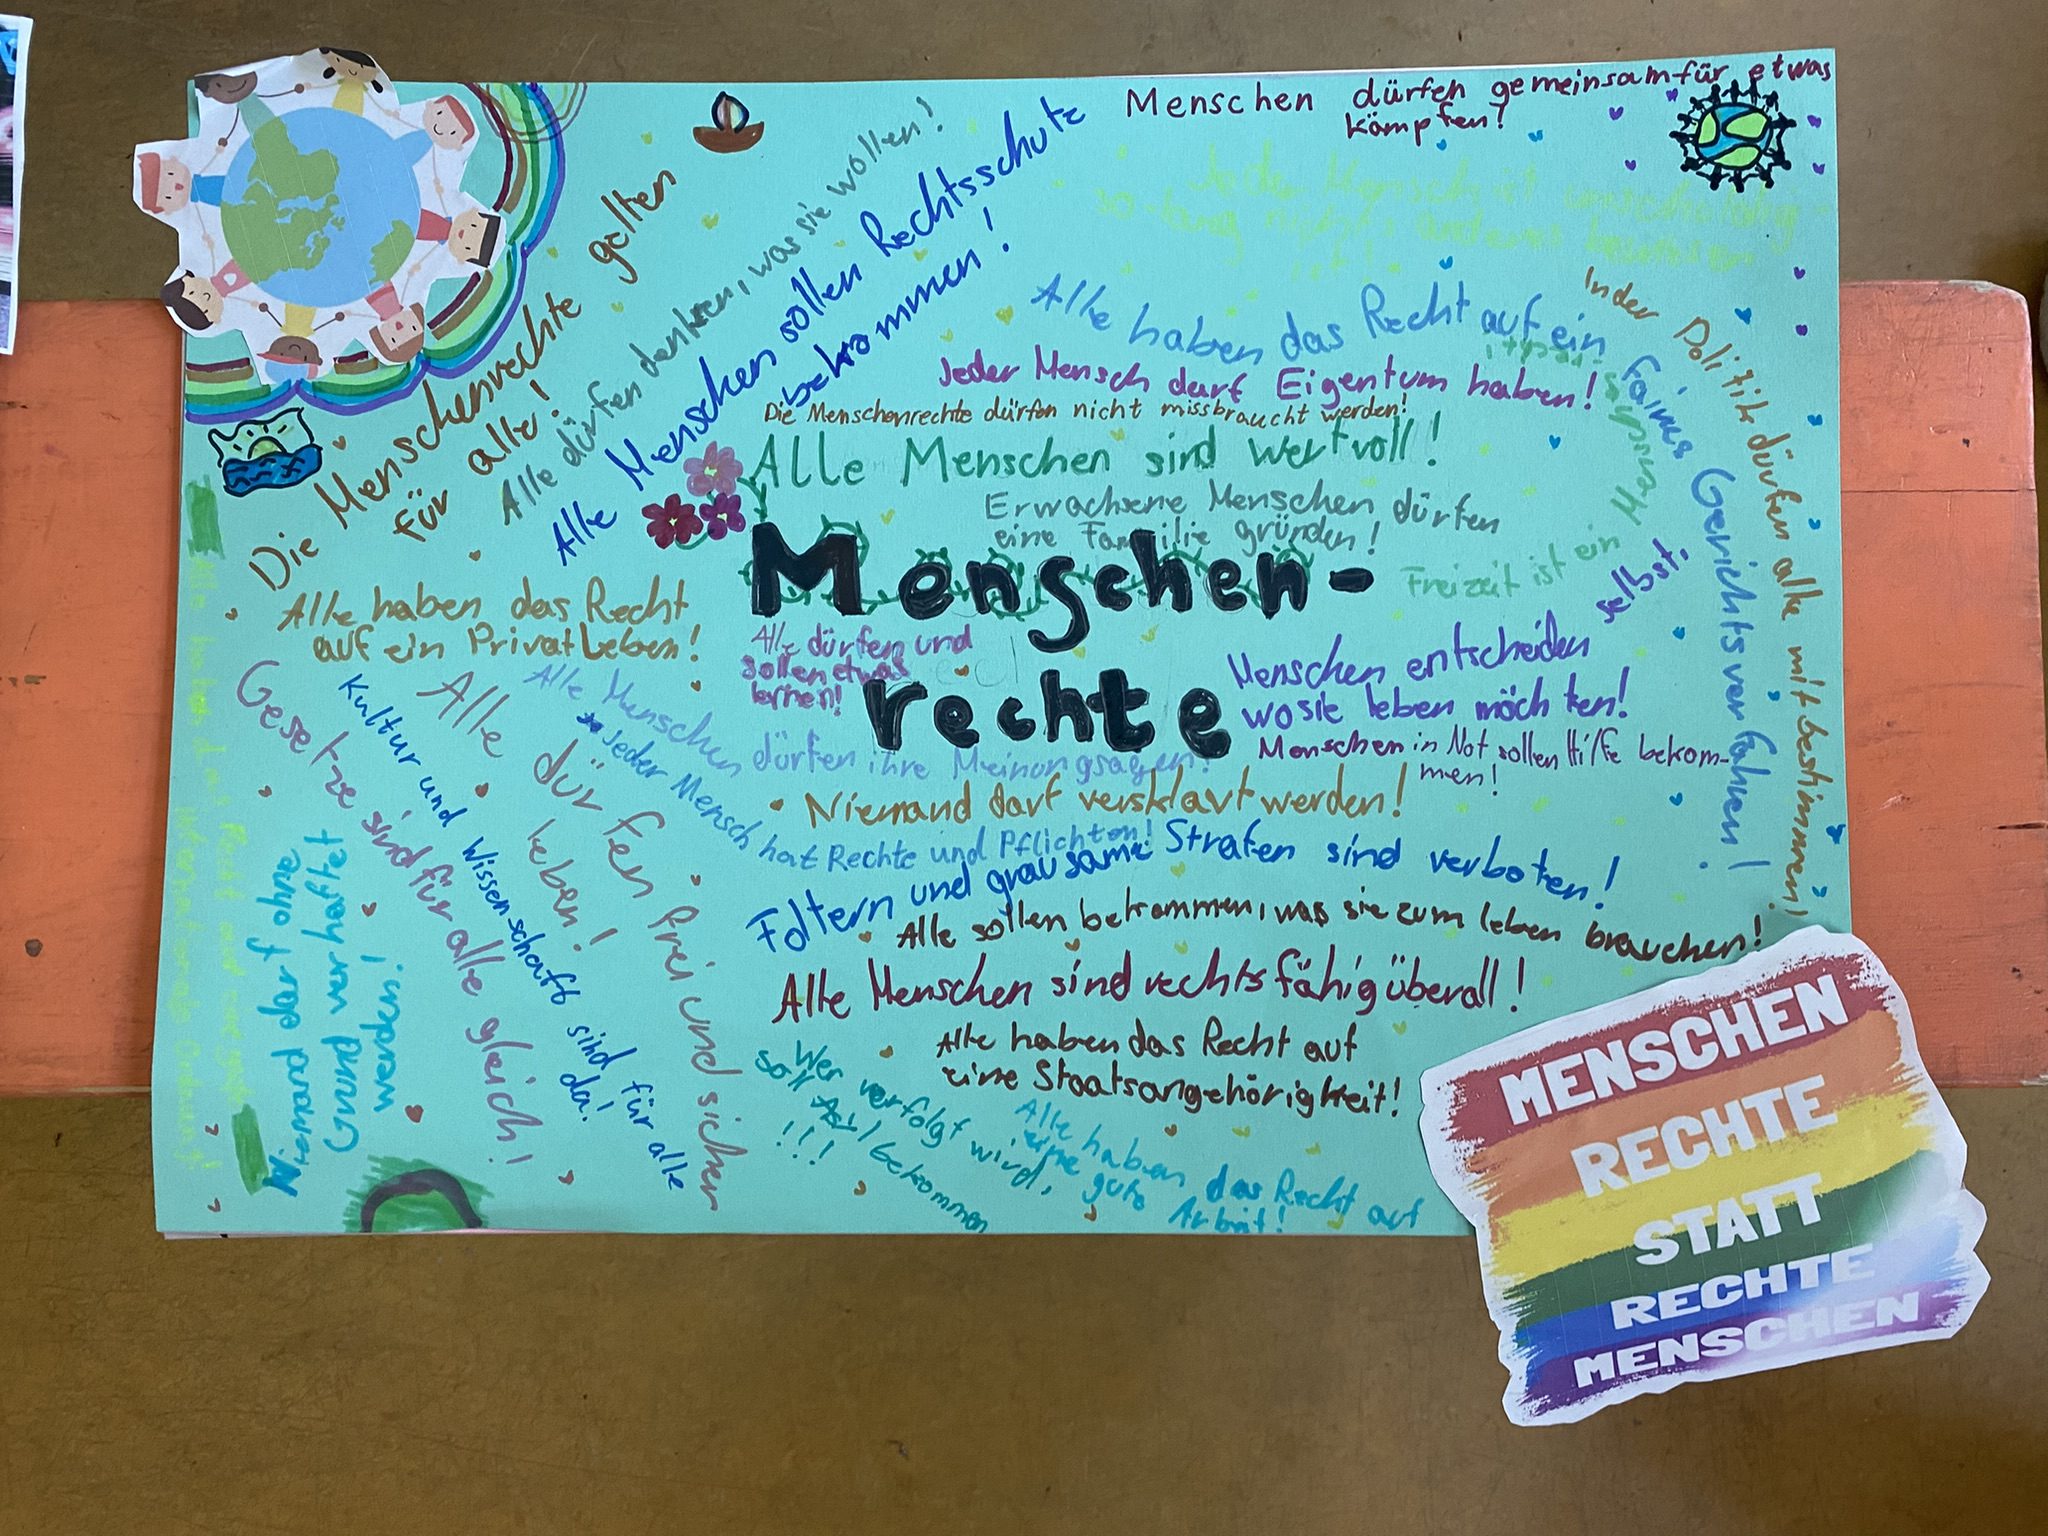 Menschen dürfen gemeinsam für etwas
kämpfen!
Jeder Mensch ist unschuldig
so-lang nichts anderes bewiesen
ist!
Die Menschenrechte gelten
für alle!
Alle dürfen denken, was sie wollen!
Alle Menschen sollen Rechtsschutz
bekommen!
Alle haben das Recht auf ein faires Gerichtsverfahren!
In der Politik dürfen alle mitbestimmen!
Jeder Mensch darf Eigentum haben!
Die Menschenrechte dürfen nicht missbraucht werden!
Alle Menschen sind wertvoll!
Erwachsene Menschen dürfen
eine Familie gründen!
Freizeit ist ein
Menschen-
rechte
Alle haben das Recht
auf ein Privatleben!
Alle dürfen und
sollen etwas
lernen!
Menschen entscheiden selbst,
wo sie leben möchten!
Menschen in Not sollen Hilfe bekom-
men!
Alle Menschen dürfen ihre Meinung sagen!
Jeder Mensch hat Rechte und Pflichten!
Niemand darf versklavt werden!
Foltern und grausame Strafen sind verboten!
Alle sollen bekommen, was sie zum leben brauchen!
Alle Menschen sind rechtsfähig überall!
Alle haben das Recht auf
eine Staatsangehörigkeit!
Wer verfolgt wird,
soll Asyl bekommen
!!!
Alle haben das Recht auf
eine gute
Arbeit!
Alle dürfen frei und sicher
leben!
Kultur und Wissenschaft sind für alle
da!
Gesetze sind für alle gleich!
Niemand darf ohne
Grund verhaftet
werden!
Alle haben das Recht auf eine gute
Internationale Ordnung!
MENSCHEN
RECHTE
STATT
RECHTE
MENSCHEN